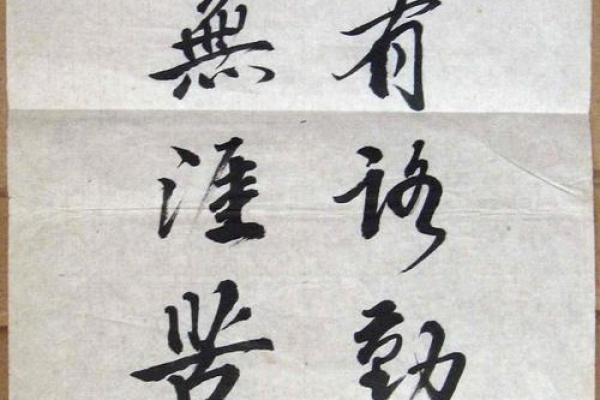 有路勤
無涯苦